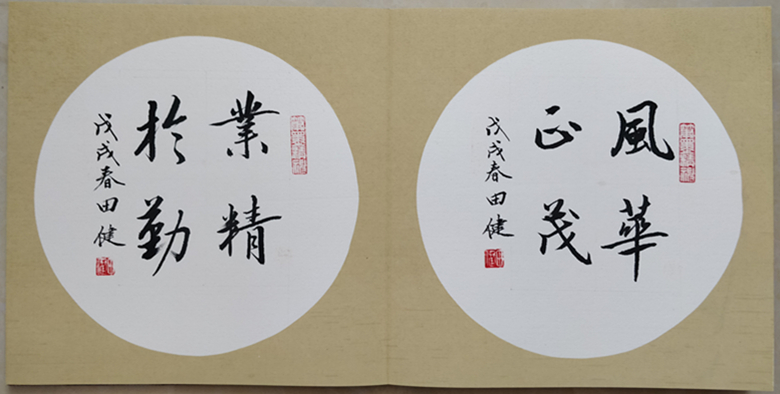 風華
正茂
戊戌春田健
業精
於勤
戊戌春田健